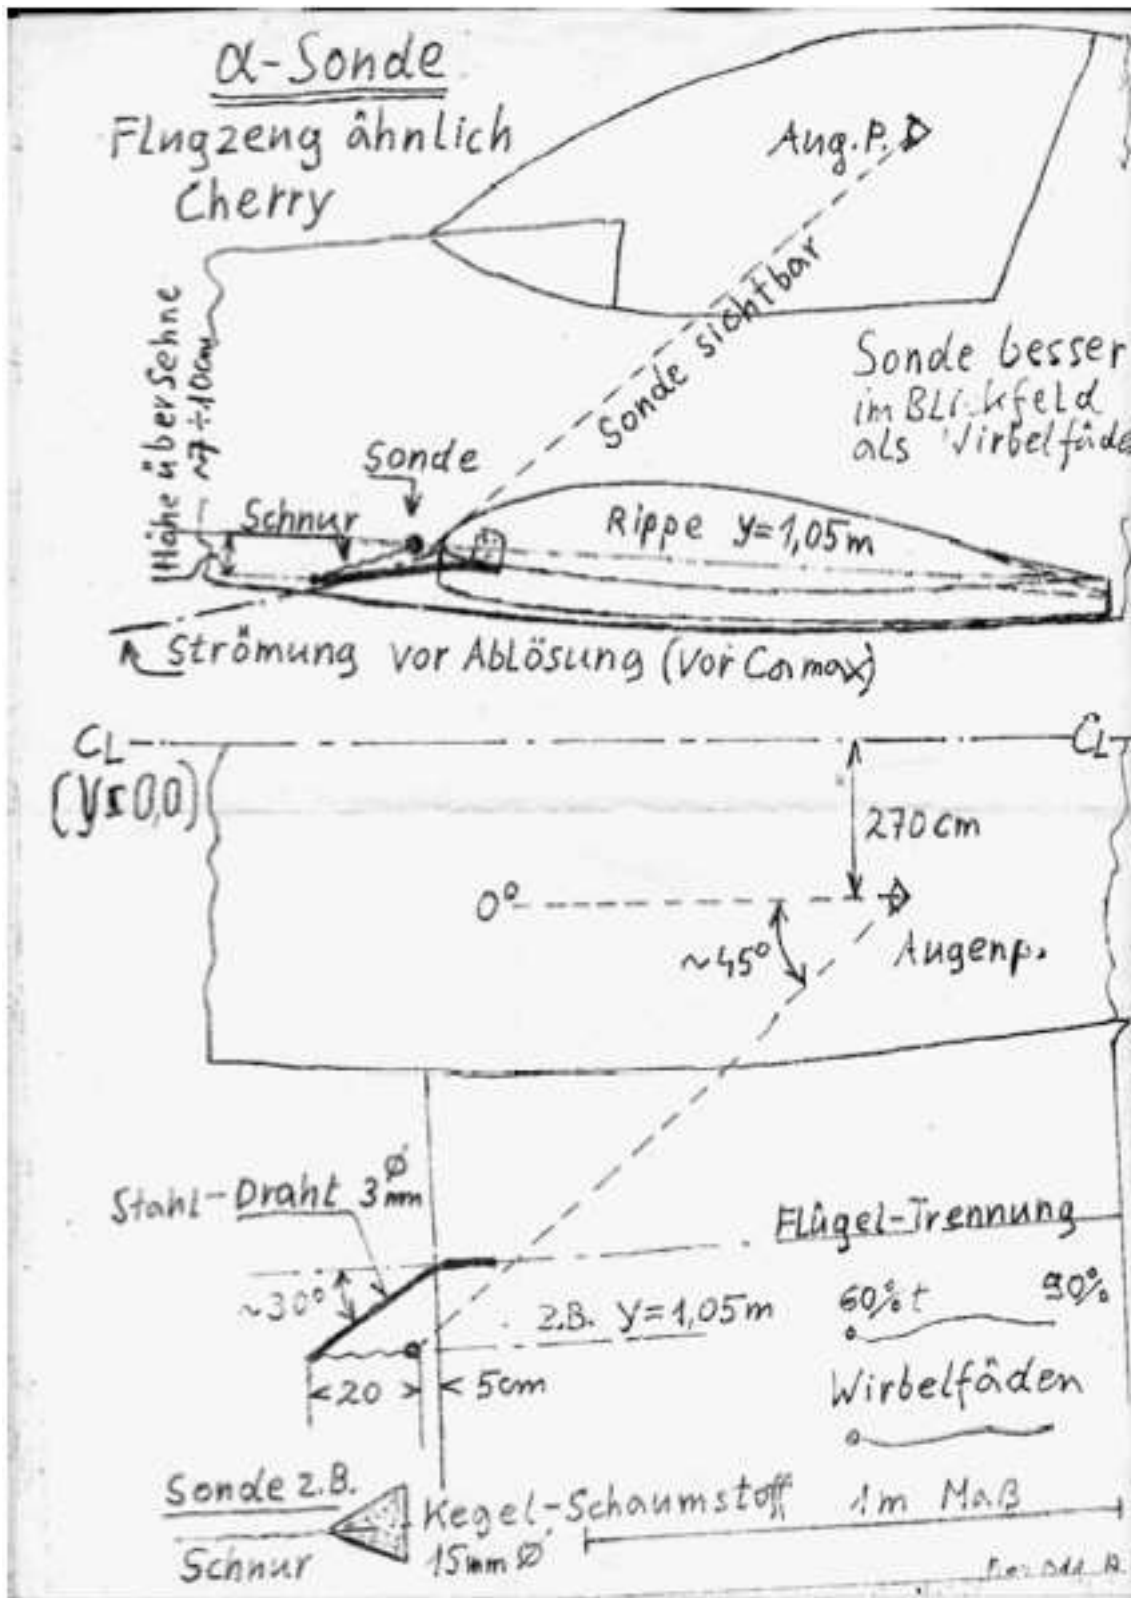 α-Sonde
Flugzeug ähnlich
Cherry
Aug.P.
Sonde sichtbar
Höhe über Sehne
~7÷10cm
Sonde besser
im Blickfeld
als Wirbelfäde
Sonde
Schnur
Rippe y=1,05m
Strömung vor Ablösung (vor Camax)
CL
CL
(y=0,0)
270cm
0°
~45°
Augenp.
Stahl-Draht 3mm Ø
Flügel-Trennung
~30°
60%t 90%
z.B. y=1,05m
20
5cm
Wirbelfäden
Sonde z.B.
Schnur
Kegel-Schaumstoff
15mm Ø
1m Maß